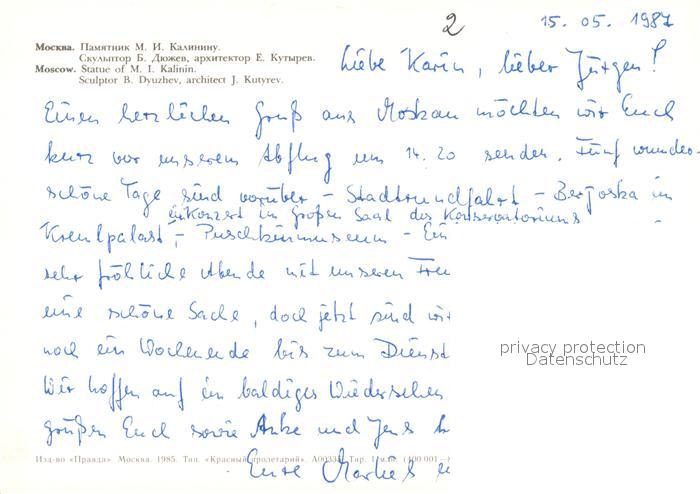 2
15. 05. 1987
Москва. Памятник М. И. Калинину.
Скульптор Б. Дюжев, архитектор Е. Кутырев.
Moscow. Statue of M. I. Kalinin.
Sculptor B. Dyuzhev, architect J. Kutyrev.
Liebe Karin, lieber Jürgen!
Einen herzlichen Gruß aus Moskau möchten wir Euch
kurz vor unserem Abflug um 14.20 senden. Fünf wunder-
schöne Tage sind vorüber – Stadtrundfahrt – Berjoska im
ein Konzert im Großen Saal des Konservatoriums –
Kremlpalast – Puschkinmuseum – Ein
sehr fröhliche Abende mit unseren Freu
eine schöne Sache, doch jetzt sind wir
noch ein Wochenende bis zum Dienst
Wir hoffen auf ein baldiges Wiedersehen
grüßen Euch sowie Anke und Jens
Eure
privacy protection
Datenschutz
Изд-во «Правда». Москва. 1985. Тип. «Красный пролетарий». Тир. 1 млн. (400 001—)